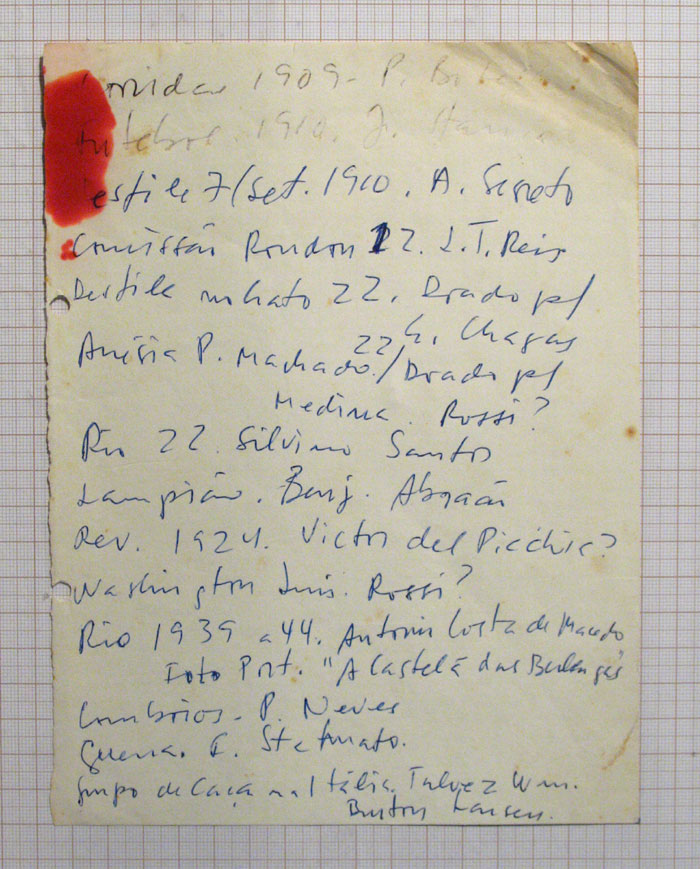 Corridas 1909 - P.
Futebol. 1910. J.
Desfile 7/Set. 1910. A. Segreto
Comissão Rondon 12. L. T. Reis
Desfile no hato 22. Drado p/
G. Chagas
Anésia P. Machado. 22/Drado p/
Medina. Rossi?
Rio 22. Silvino Santos
Lampião. Benj. Abraão
Rev. 1924. Victor del Picchia?
Washington Luis. Rossi?
Rio 1939 a 44. Antonio Costa de Macedo
Foto Port. "A Castelã das Berlengas"
Comboios - P. Neves
Guerra. F. Stefanato.
Grupo de Caça na Itália. Talvez Wm.
Burton Larsen.